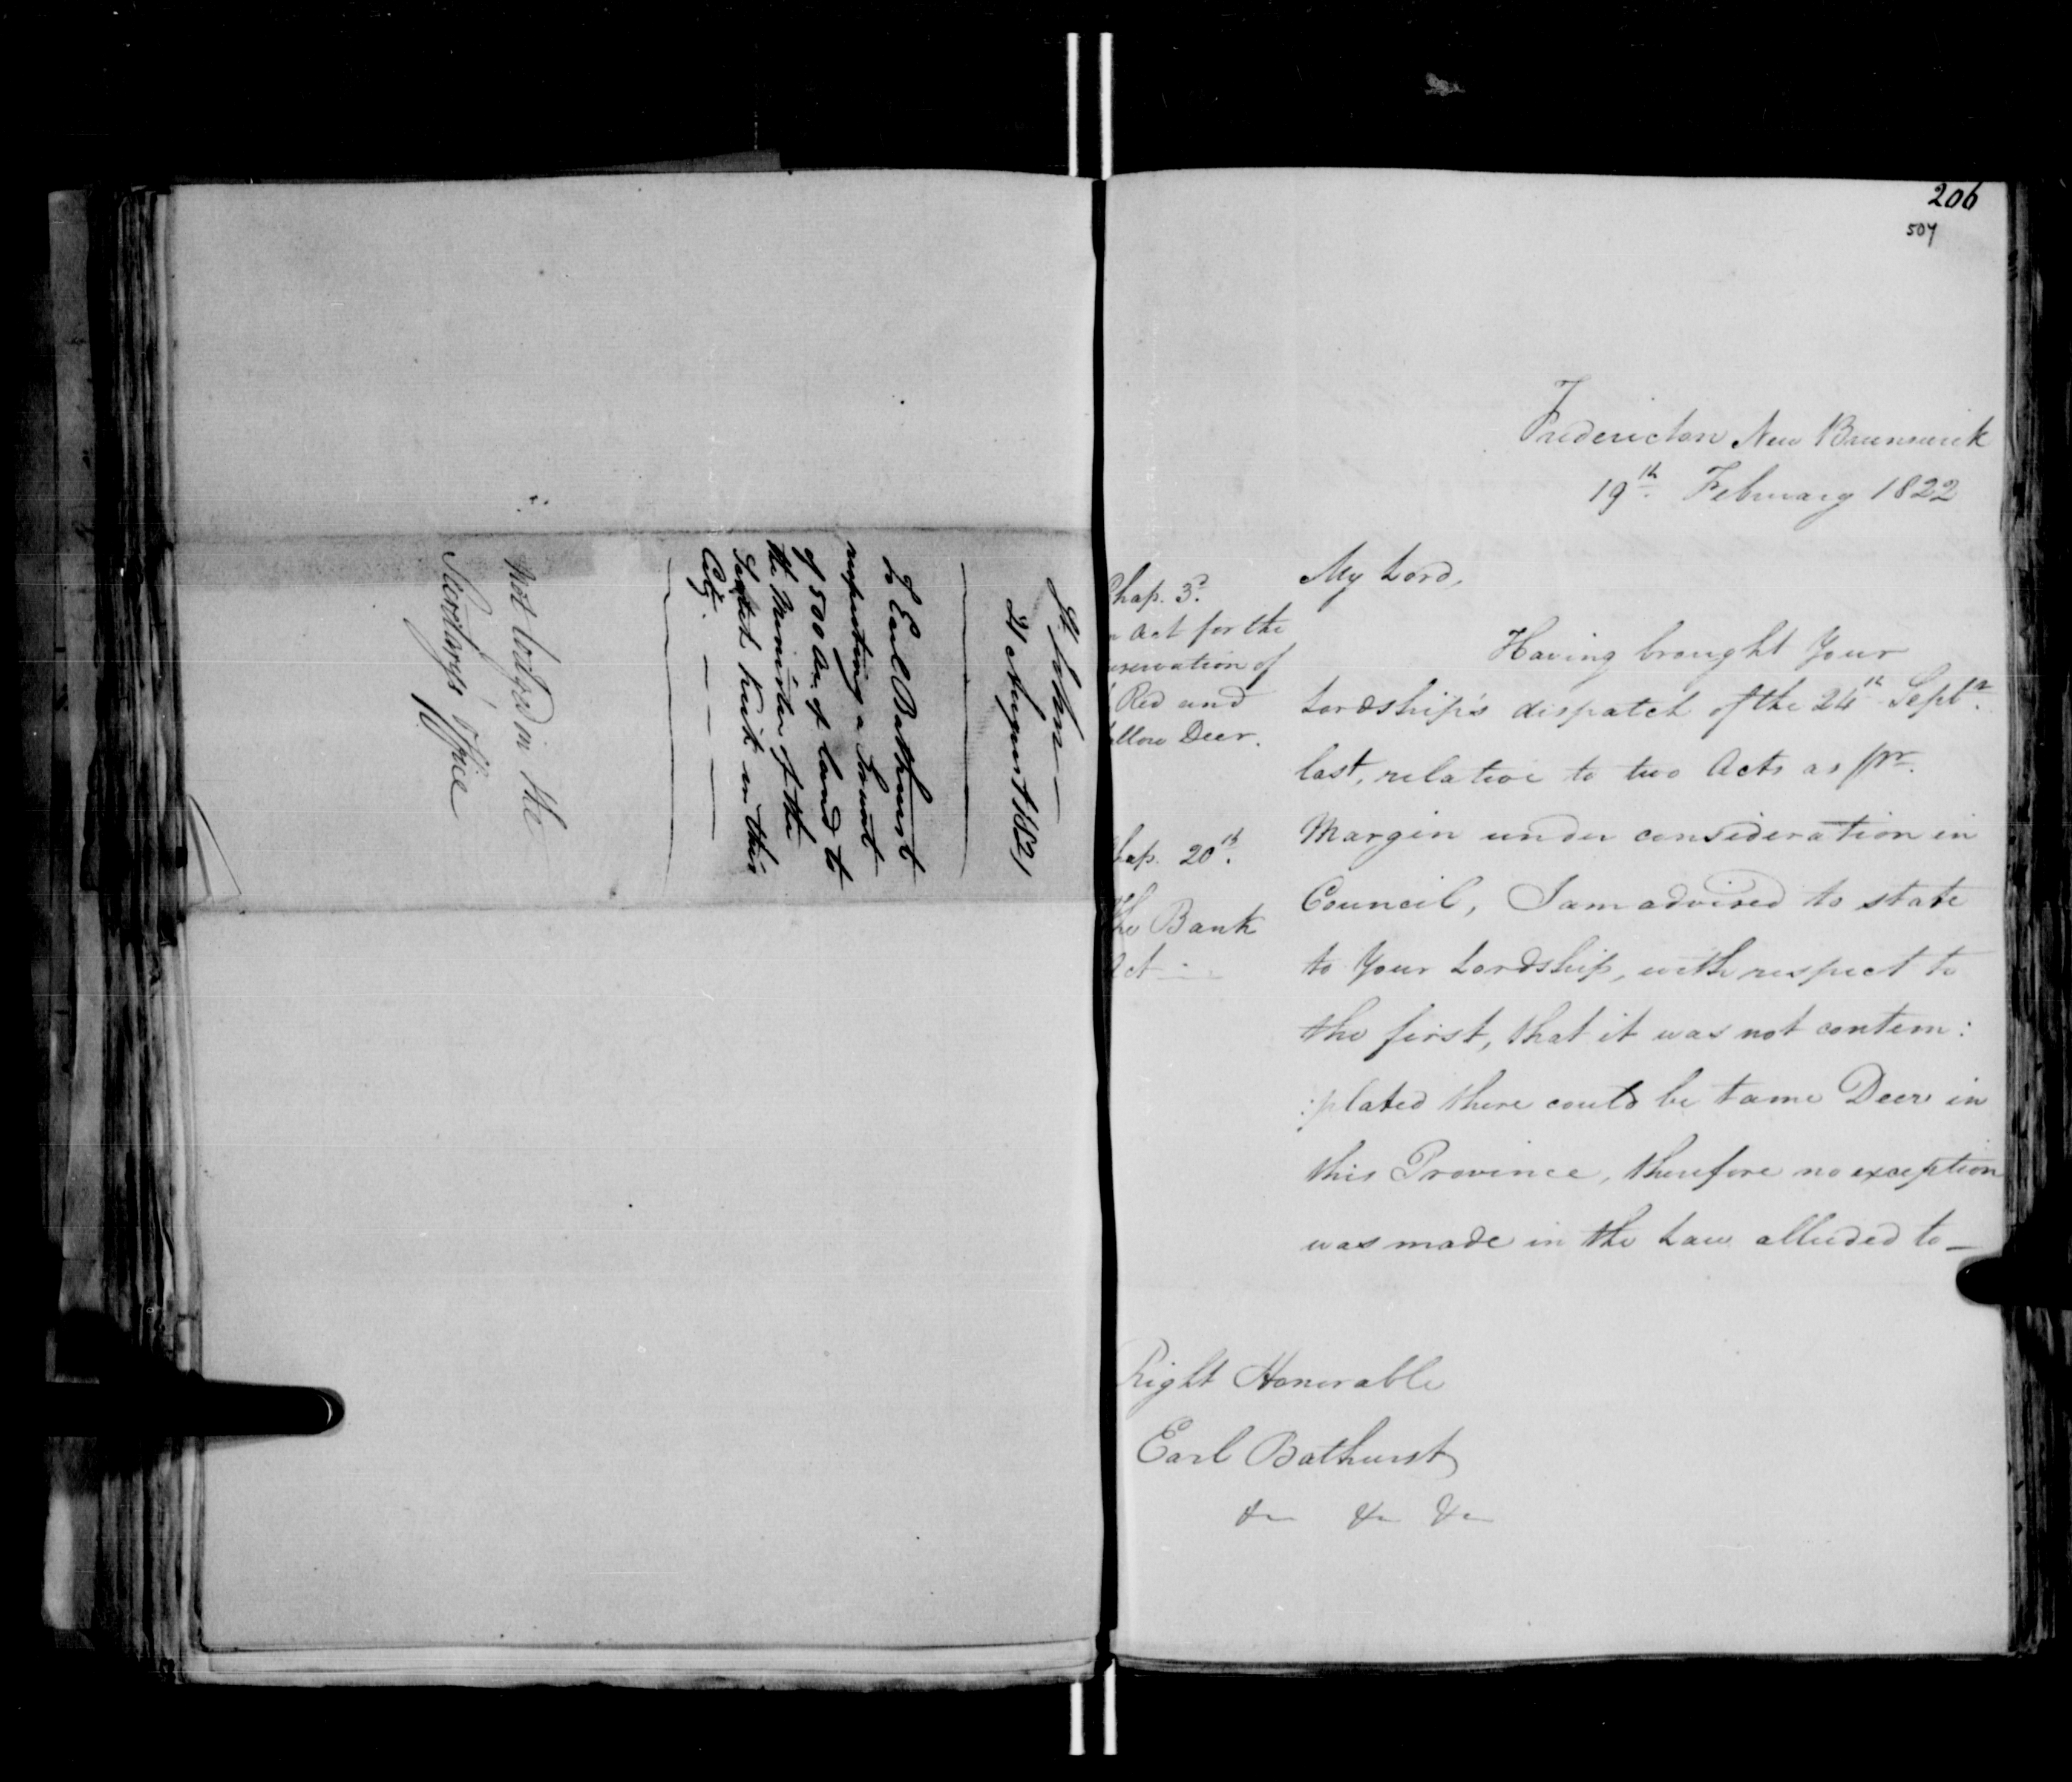 St. John
21 August 1821
To Earl Bathurst
respecting a Grant
of 500 Ac. of land to
the Minister of the
Scotch Kirk in this
City.
Not lodged in the
Secretary's Office
206
504
Fredericton New Brunswick
19th. February 1822
My Lord,
Having brought Your
Lordship's dispatch of the 24th Septr.
last, relative to two Acts as pr.
Margin under consideration in
Council, I am advised to state
to Your Lordship, with respect to
the first, that it was not contem:
:plated there could be tame Deer in
this Province, therefore no exception
was made in the Law alluded to—
Chap. 3d.
n Act for the
eservation of
Red and
allow Deer.
hap. 20th.
The Bank
Act
Right Honorable
Earl Bathurst
&c &c &c